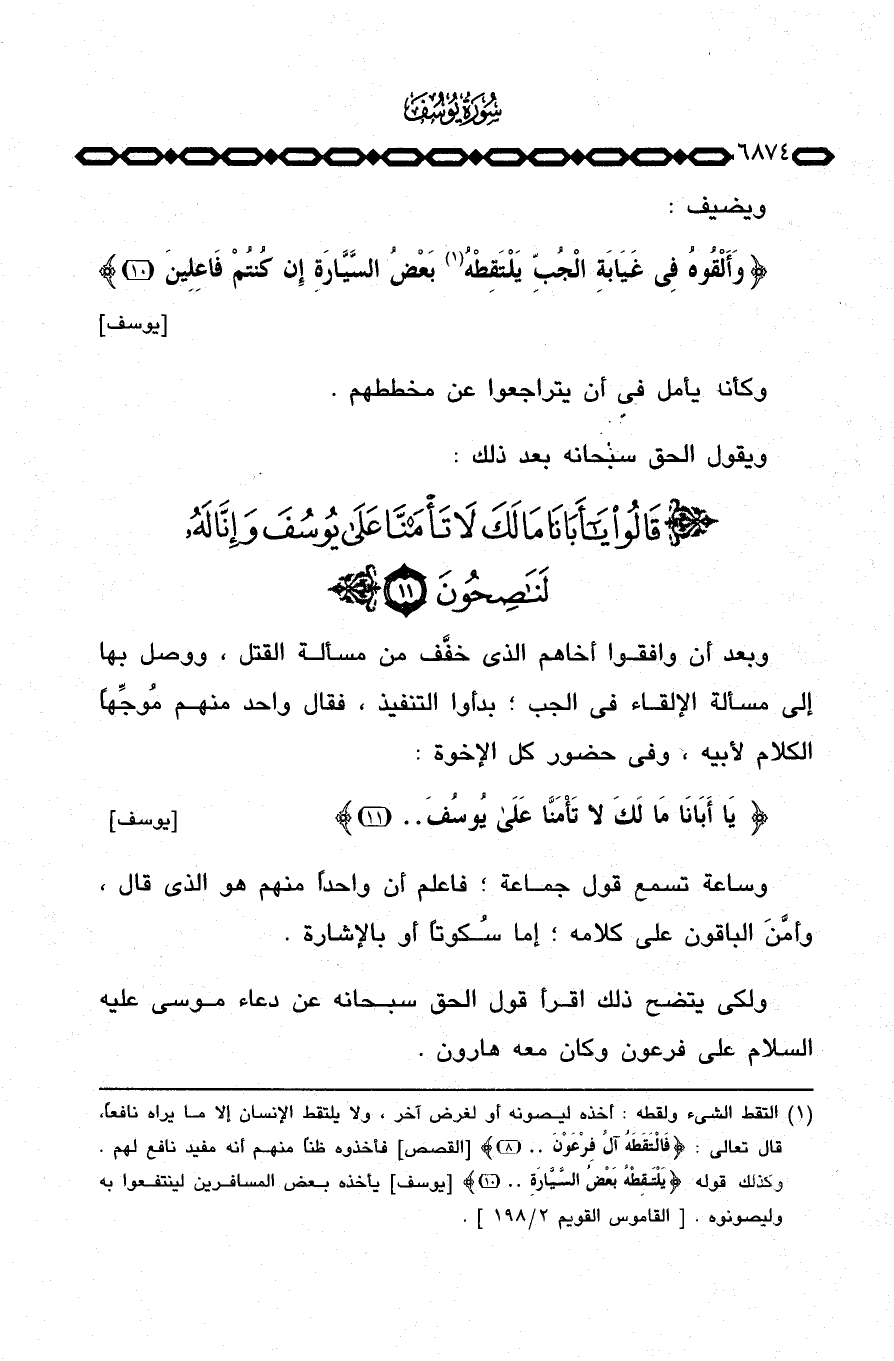 سُورَةُ يُوسُفَ
٦٨٧٤
ويضيف :
﴿ وَأَلْقُوهُ فِى غَيَابَةِ الْجُبِّ يَلْتَقِطْهُ(١) بَعْضُ السَّيَّارَةِ إِن كُنتُمْ فَاعِلِينَ (١٠) ﴾
[يوسف]
وكأنه يأمل فى أن يتراجعوا عن مخططهم .
ويقول الحق سبحانه بعد ذلك :
﴿ قَالُواْ يَٰٓأَبَانَا مَالَكَ لَا تَأْمَ۫نَّا عَلَىٰ يُوسُفَ وَإِنَّا لَهُۥ
لَنَٰصِحُونَ ١١ ﴾
وبعد أن وافقـوا أخاهم الذى خفَّف من مسألـة القتل ، ووصل بها
إلى مسألة الإلقـاء فى الجب ؛ بدأوا التنفيذ ، فقال واحد منهـم مُوجِّهاً
الكلام لأبيه ، وفى حضور كل الإخوة :
﴿ يَا أَبَانَا مَا لَكَ لا تَأْمَنَّا عَلَىٰ يُوسُفَ .. (١١) ﴾ [يوسف]
وساعة تسمع قول جمـاعة ؛ فاعلم أن واحداً منهم هو الذى قال ،
وأمَّنَ الباقون على كلامه ؛ إما سُـكوتاً أو بالإشارة .
ولكى يتضح ذلك اقـرأ قول الحق سبـحانه عن دعاء مـوسى عليه
السلام على فرعون وكان معه هارون .
(١) التقط الشىء ولقطه : أخذه ليـصونه أو لغرض آخر ، ولا يلتقط الإنسان إلا مـا يراه نافعاً،
قال تعالى : ﴿ فَالْتَقَطَهُ آلُ فِرْعَوْنَ .. (٨) ﴾ [القصص] فأخذوه ظناً منهـم أنه مفيد نافع لهم .
وكذلك قوله ﴿ يَلْتَقِطْهُ بَعْضُ السَّيَّارَةِ .. (١٠) ﴾ [يوسف] يأخذه بـعض المسافـرين لينتفـعوا به
وليصونوه . [ القاموس القويم ١٩٨/٢ ] .